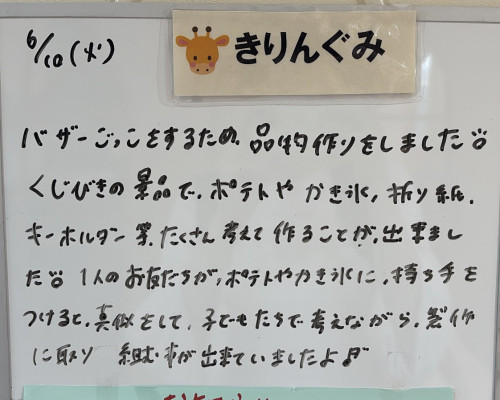 6/10(火)
きりんぐみ
バザーごっこをするため、品物作りをしました
くじびきの景品で、ポテトや かき氷、折り紙、
キーホルダー等、たくさん 考えて 作ることが、出来まし
た 1人のお友だちが、ポテトやかき氷に、持ち手を
つけると、真似をして、子どもたちで 考えながら、製作
に取り 組む事が出来ていましたよ♪